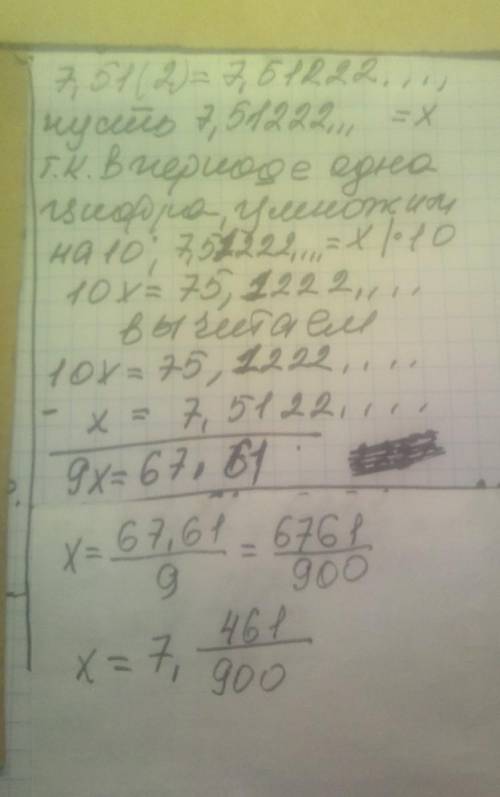 7,51(2)=7,51222....,
пусть 7,51222,,, =x
т.к. в периоде одна
цифра, умножим
на 10; 7,51222,...=x |·10
10x=75,1222,....
вычитаем
10x=75,1222....
- x = 7,5122....
9x=67,61
x=67,61/9=6761/900
x=7, 461/900